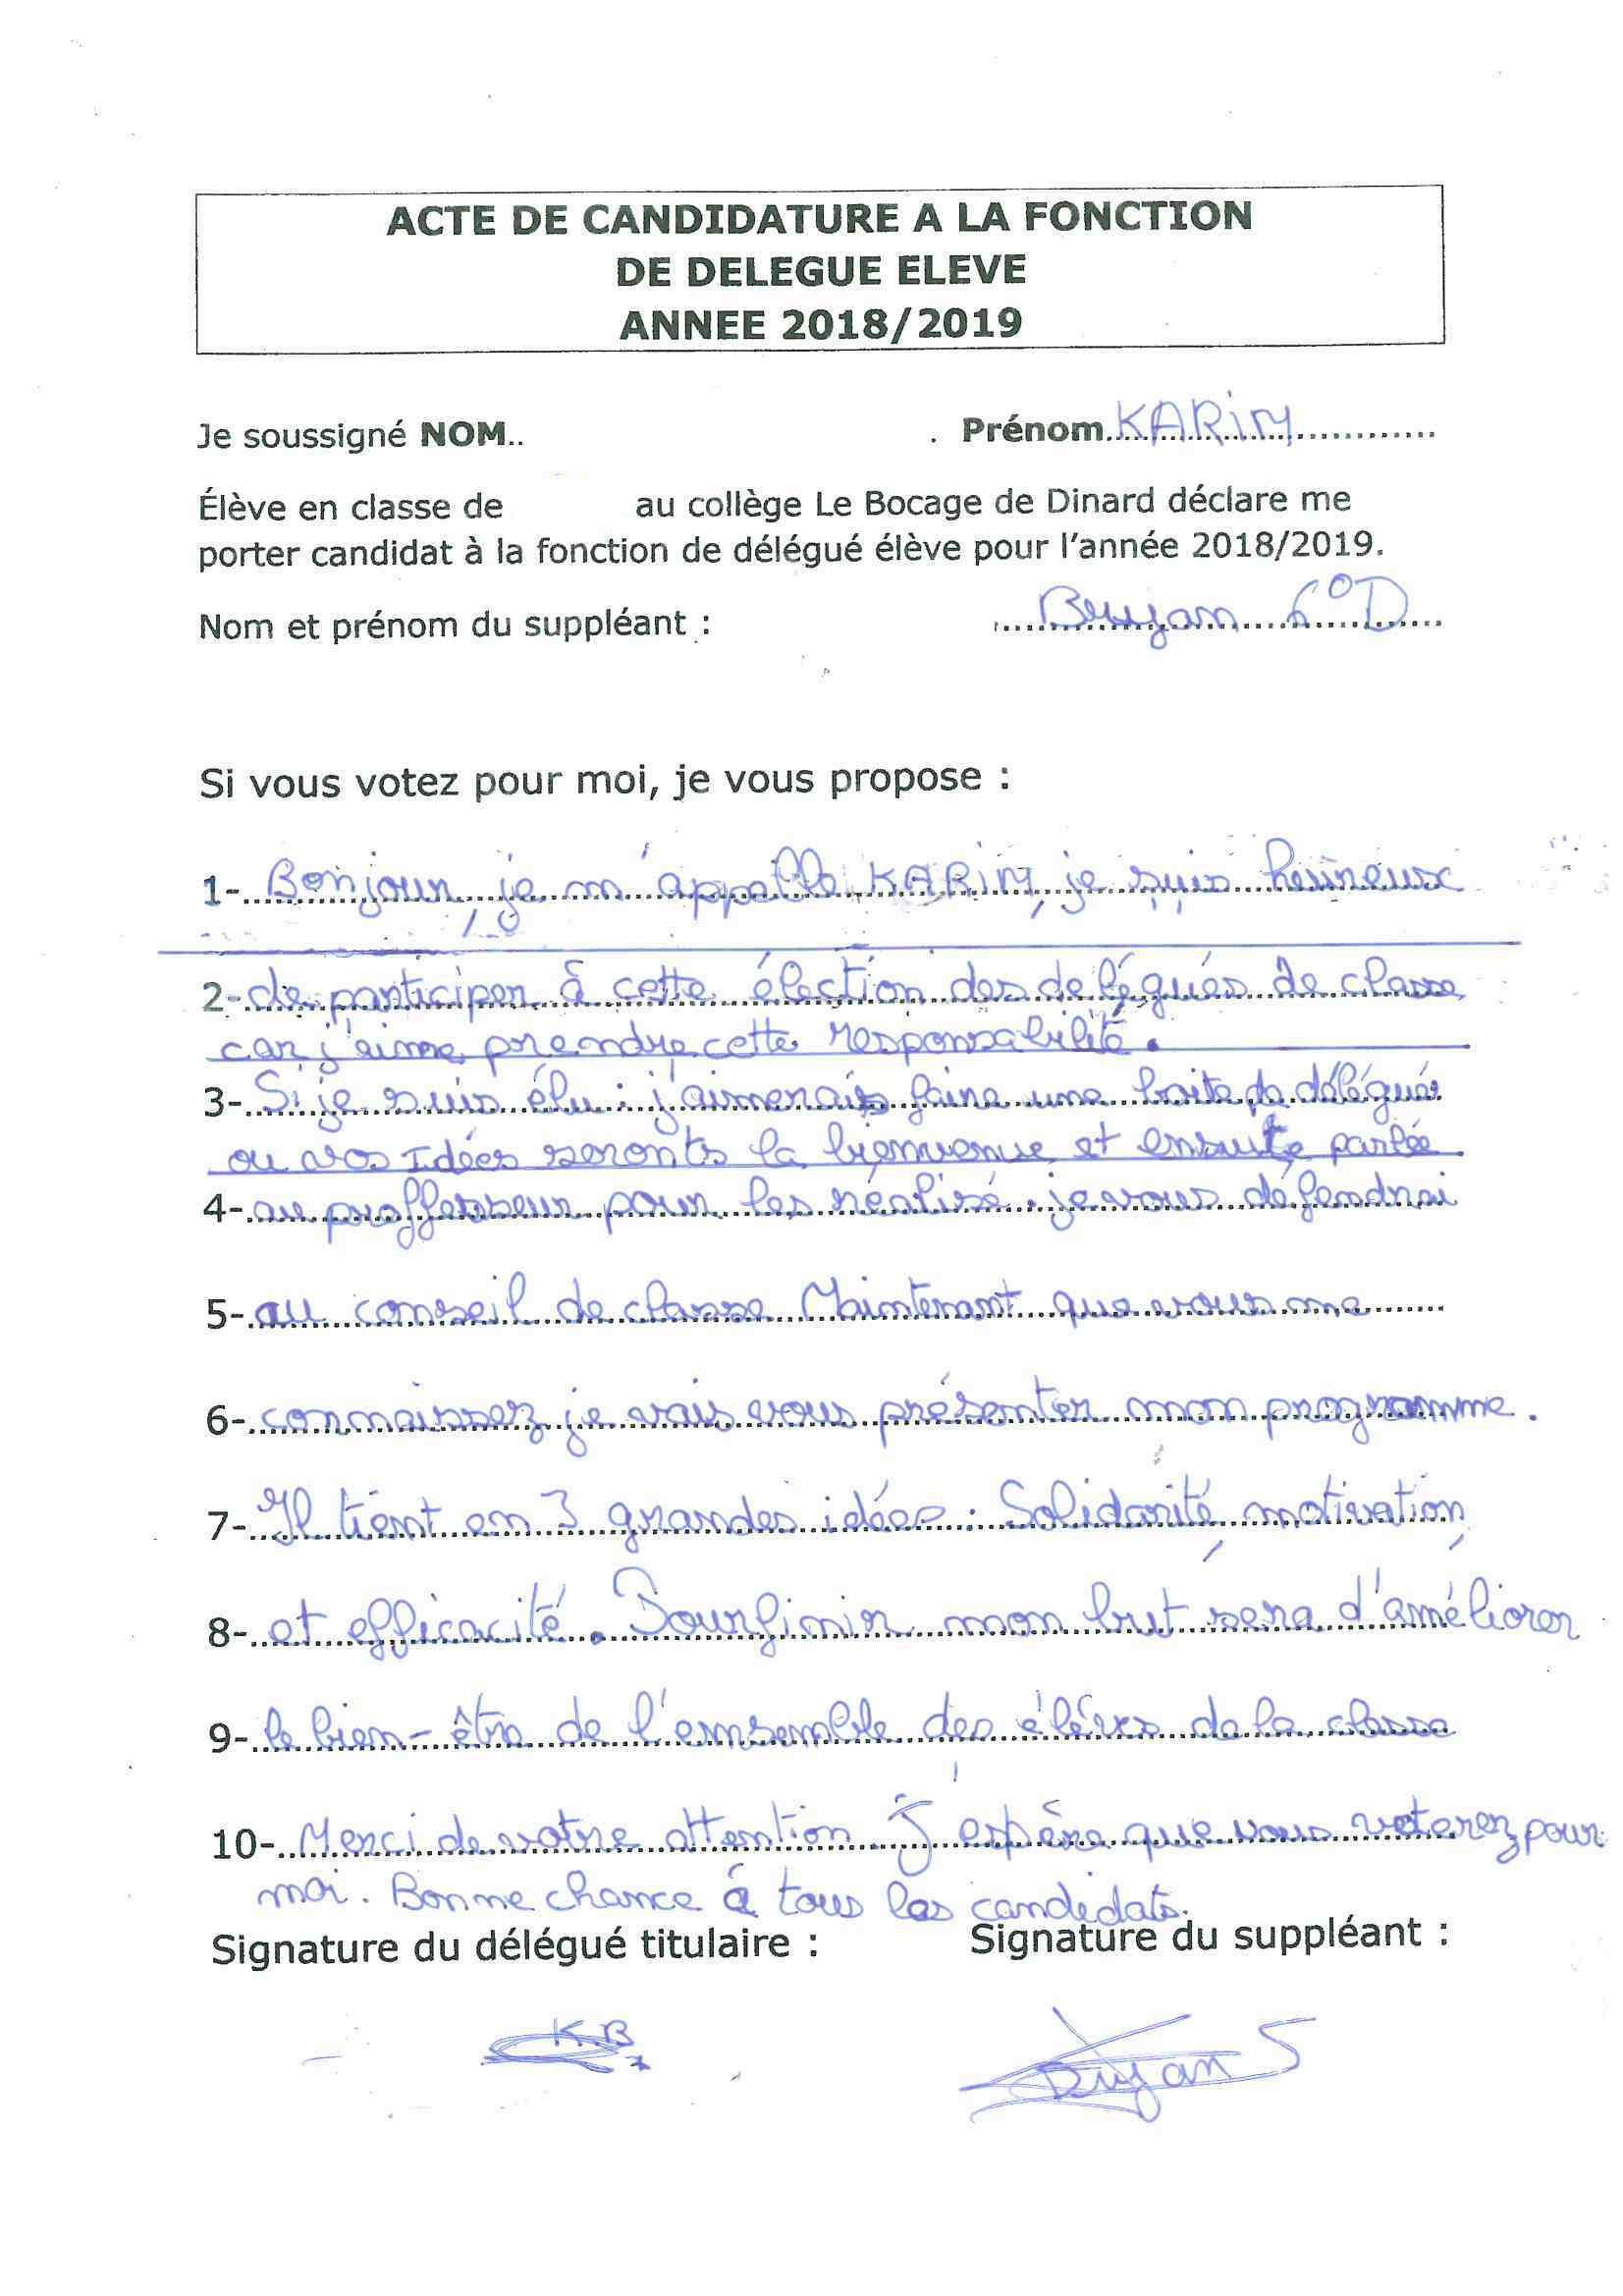 ACTE DE CANDIDATURE A LA FONCTION
DE DELEGUE ELEVE
ANNEE 2018/2019
Je soussigné NOM.. . Prénom KARIM
Élève en classe de au collège Le Bocage de Dinard déclare me
porter candidat à la fonction de délégué élève pour l'année 2018/2019.
Nom et prénom du suppléant : 6°D
Si vous votez pour moi, je vous propose :
1- Bonjour, je m'appelle KARIM, je suis heureux
2- de participer à cette élection des délégués de classe
car j'aime prendre cette responsabilité.
3- Si je suis élu : j'aimerais faire une boite de délégués
ou vos Idées seronts la bienvenue et ensuite parlée
4- au proffesseur pour les réalisé. je vous défendrai
5- au conseil de classe Maintenant que vous me
6- connaissez je vais vous présenter mon programme.
7- Il tient en 3 grandes idées : Solidarité, motivation,
8- et efficacité. Pourfinir mon but sera d'améliorer
9- le bien-être de l'ensemble des éléves de la classe
10- Merci de votre attention. J'espère que vous voterez pour
moi. Bonne chance à tous les candidats.
Signature du délégué titulaire : Signature du suppléant :
K.B